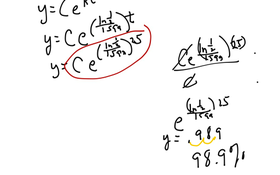 y = Ce^kt
y = Ce^(ln ½/1599)t
y = Ce^(ln ½/1599)25
Ce^(ln ½/1599)(25)
C
e^(ln ½/1599)25
y = .989
98.9%